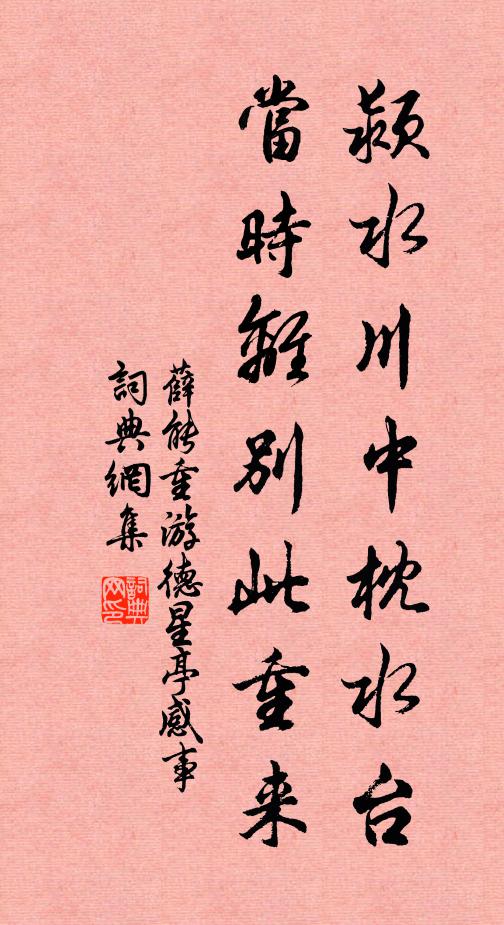 颍水川中枕水台
當時離别此重来
薛能重游德星亭感事
詞典網集
詞典
网印